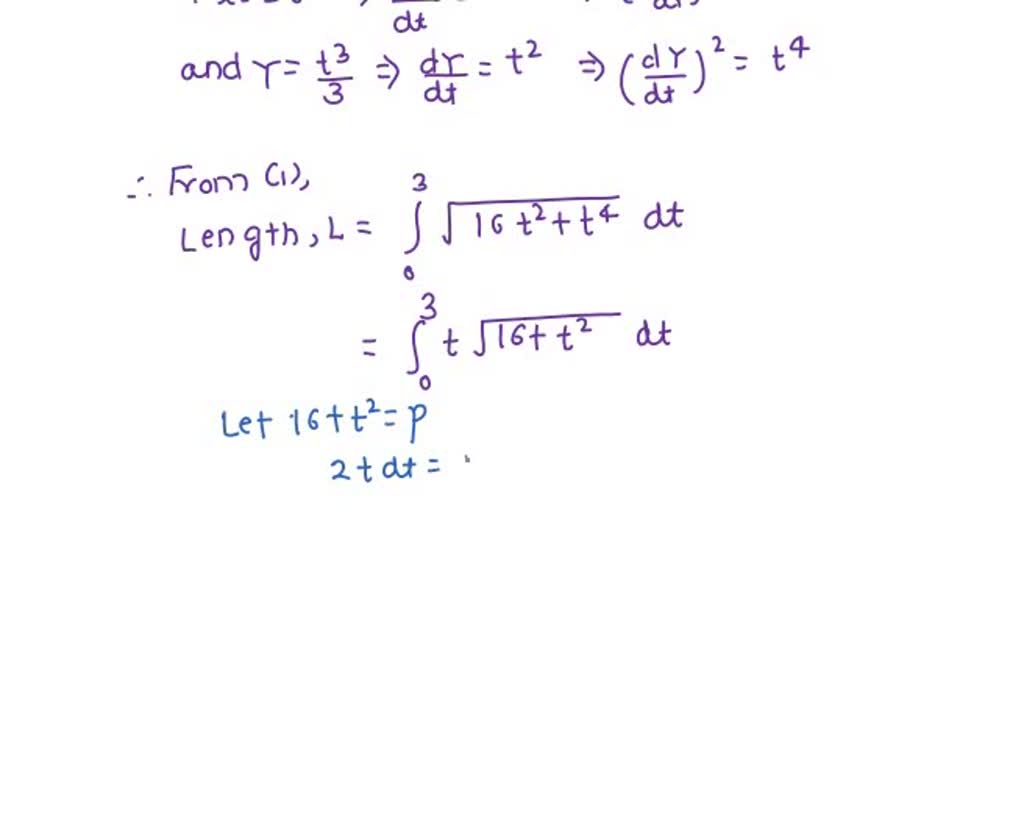 dt
and Y = t³/3 ⇒ dY/dt = t² ⇒ (dY/dt)² = t⁴
∴ From (1),
Length, L = ∫₀³ √(16t² + t⁴) dt
= ∫₀³ t √(16 + t²) dt
Let 16 + t² = p
2t dt =